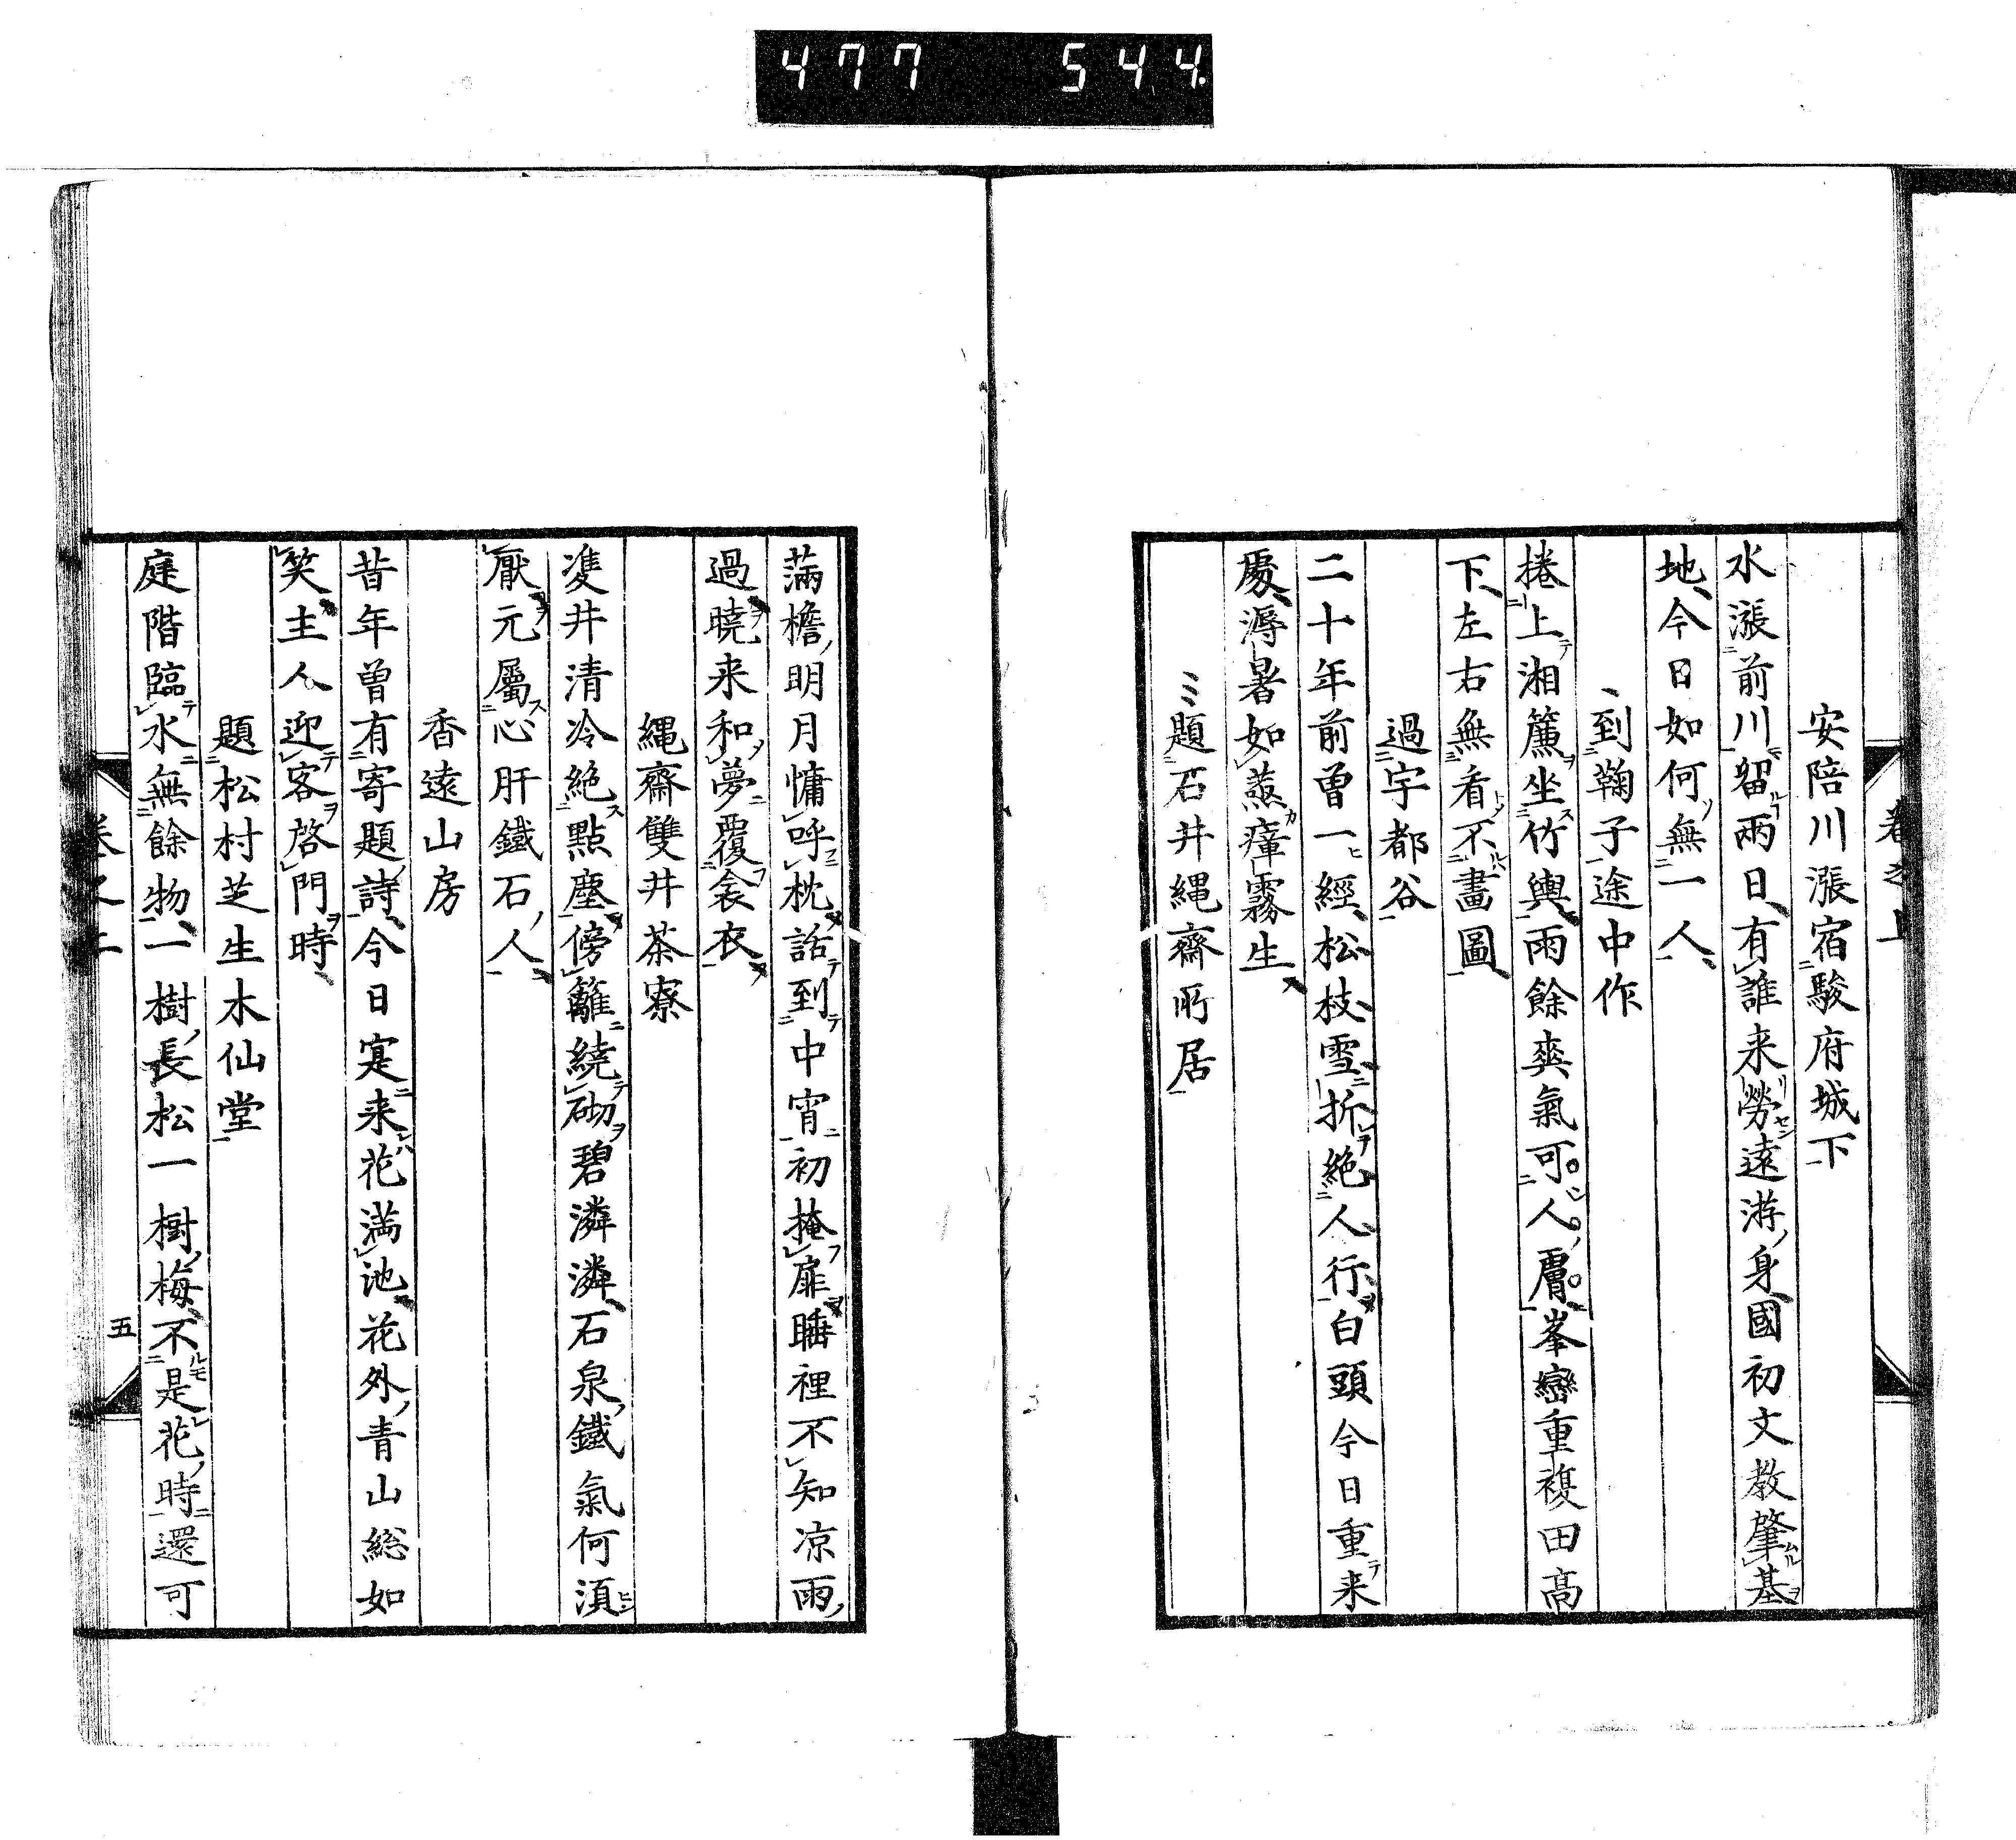 477 544
卷之上
安陪川漲宿駿府城下
水漲前川留兩日有誰来勞遠游身國初文教肇基
地今日如何無一人
到鞠子途中作
捲上湘簾坐竹輿雨餘爽氣可人膚峯巒重複田高
下左右無看不畫圖
過宇都谷
二十年前曽一經松枝雪折絶人行白頭今日重来
處溽暑如蒸瘴霧生
題石井繩齋所居
滿檐明月慵呼枕話到中宵初掩扉睡裡不知凉雨
過曉来和夢覆衾衣
繩齋雙井茶寮
雙井清冷絶點塵傍籬繞砌碧潾潾石泉鐵氣何湏
厭元屬心肝鐵石人
香遠山房
昔年曽有寄題詩今日寔来花満池花外青山総如
笑主人迎客啓門時
題松村芝生木仙堂
庭階臨水無餘物一樹長松一樹梅不是花時還可
卷之上
五